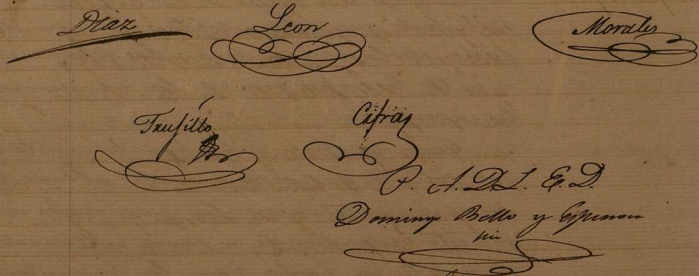 Diaz Leon Morales
Trujillo Cifra
P. A. D. L. E. D.
Domingo Bello y Espinosa